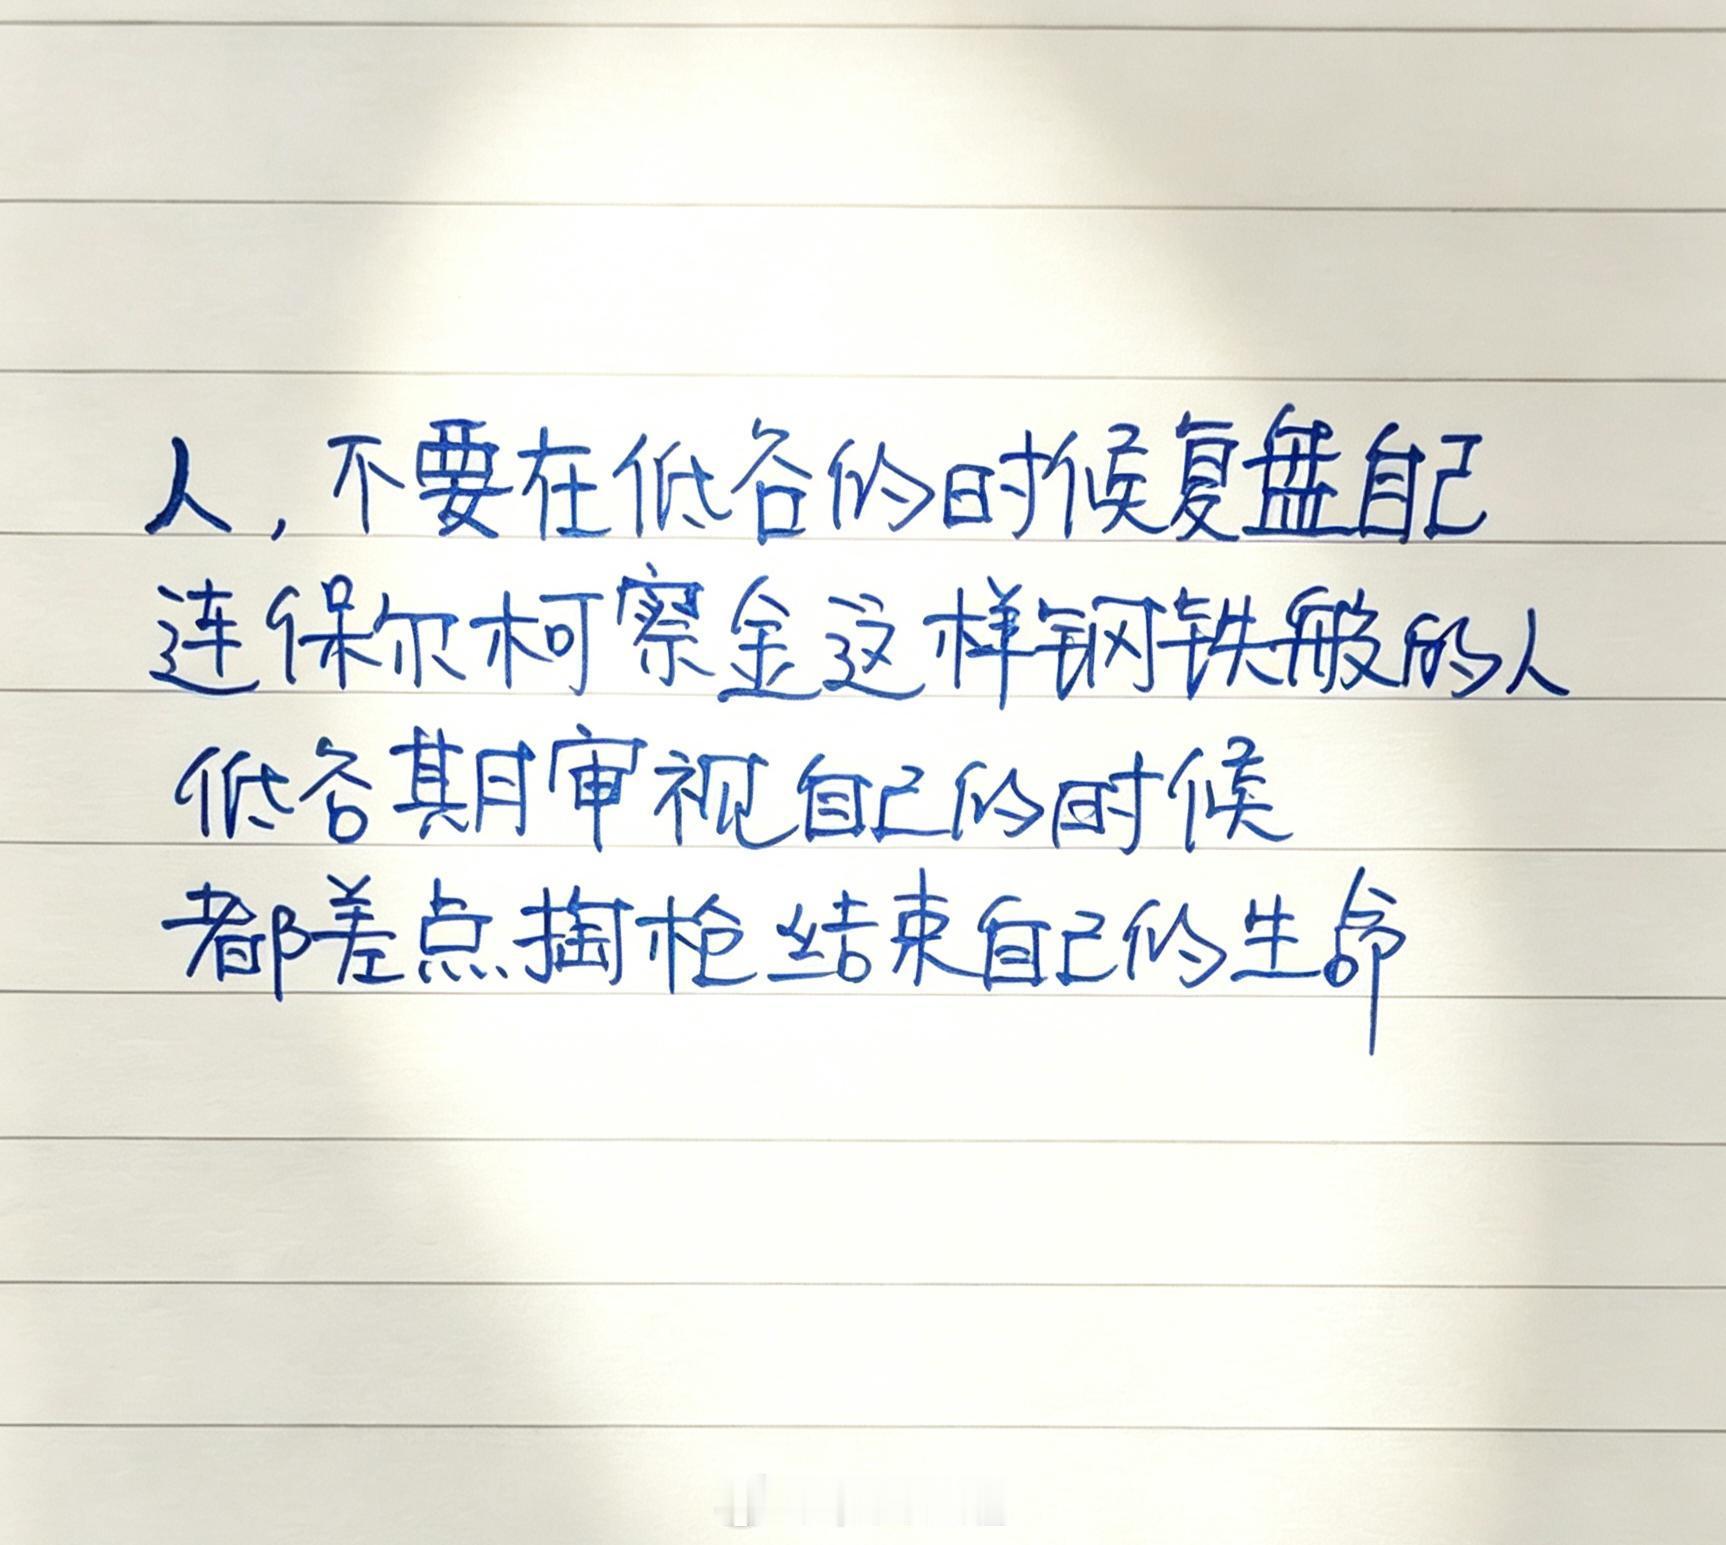 人,不要在低谷的时候复盘自己
连保尔柯察金这样钢铁般的人
低谷期审视自己的时候
都差点掏枪结束自己的生命